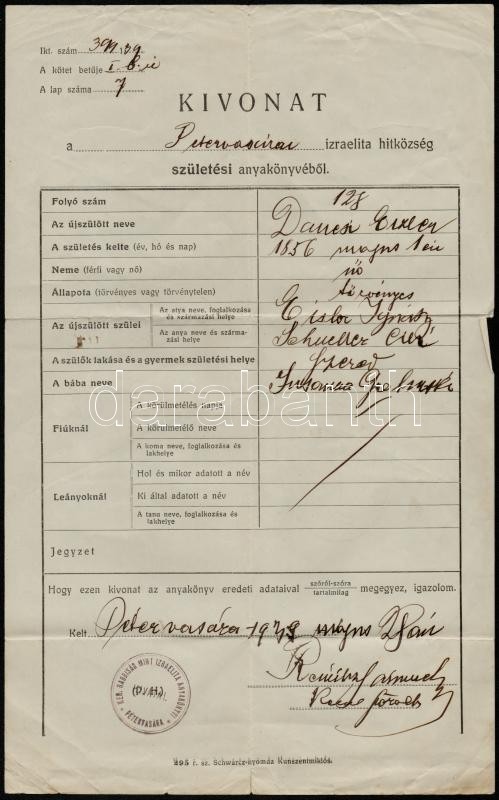 Ikt. szám 399/39
A kötet betüje I. B.
A lap száma 7
KIVONAT
a Pétervásárai izraelita hitközség
születési anyakönyvéből.
Folyó szám 128
Az újszülött neve
A születés kelte (év, hó és nap) 1856 május 1én
Neme (férfi vagy nő) nő
Állapota (törvényes vagy törvénytelen) törvényes
Az újszülött szülei
Az atya neve, foglalkozása és származási helye Eisler Ignácz
Az anya neve és származási helye
A szülők lakása és a gyermek születési helye Szered
A bába neve
Fiúknál
A körülmetélés napja
A körülmetélő neve
A koma neve, foglalkozása és lakhelye
Leányoknál
Hol és mikor adatott a név
Ki által adatott a név
A tanu neve, foglalkozása és lakhelye
Jegyzet
Hogy ezen kivonat az anyakönyv eredeti adataival szóról-szóra tartalmilag megegyez, igazolom.
Kelt Pétervására 1939 május
KER. RABBISÁG MINT IZRAELITA ANYAKÖNYVI HIVATAL
(P. H.)
PÉTERVÁSÁRA
295 r. sz. Schwárcz-nyomda Kunszentmiklós.
darabanth